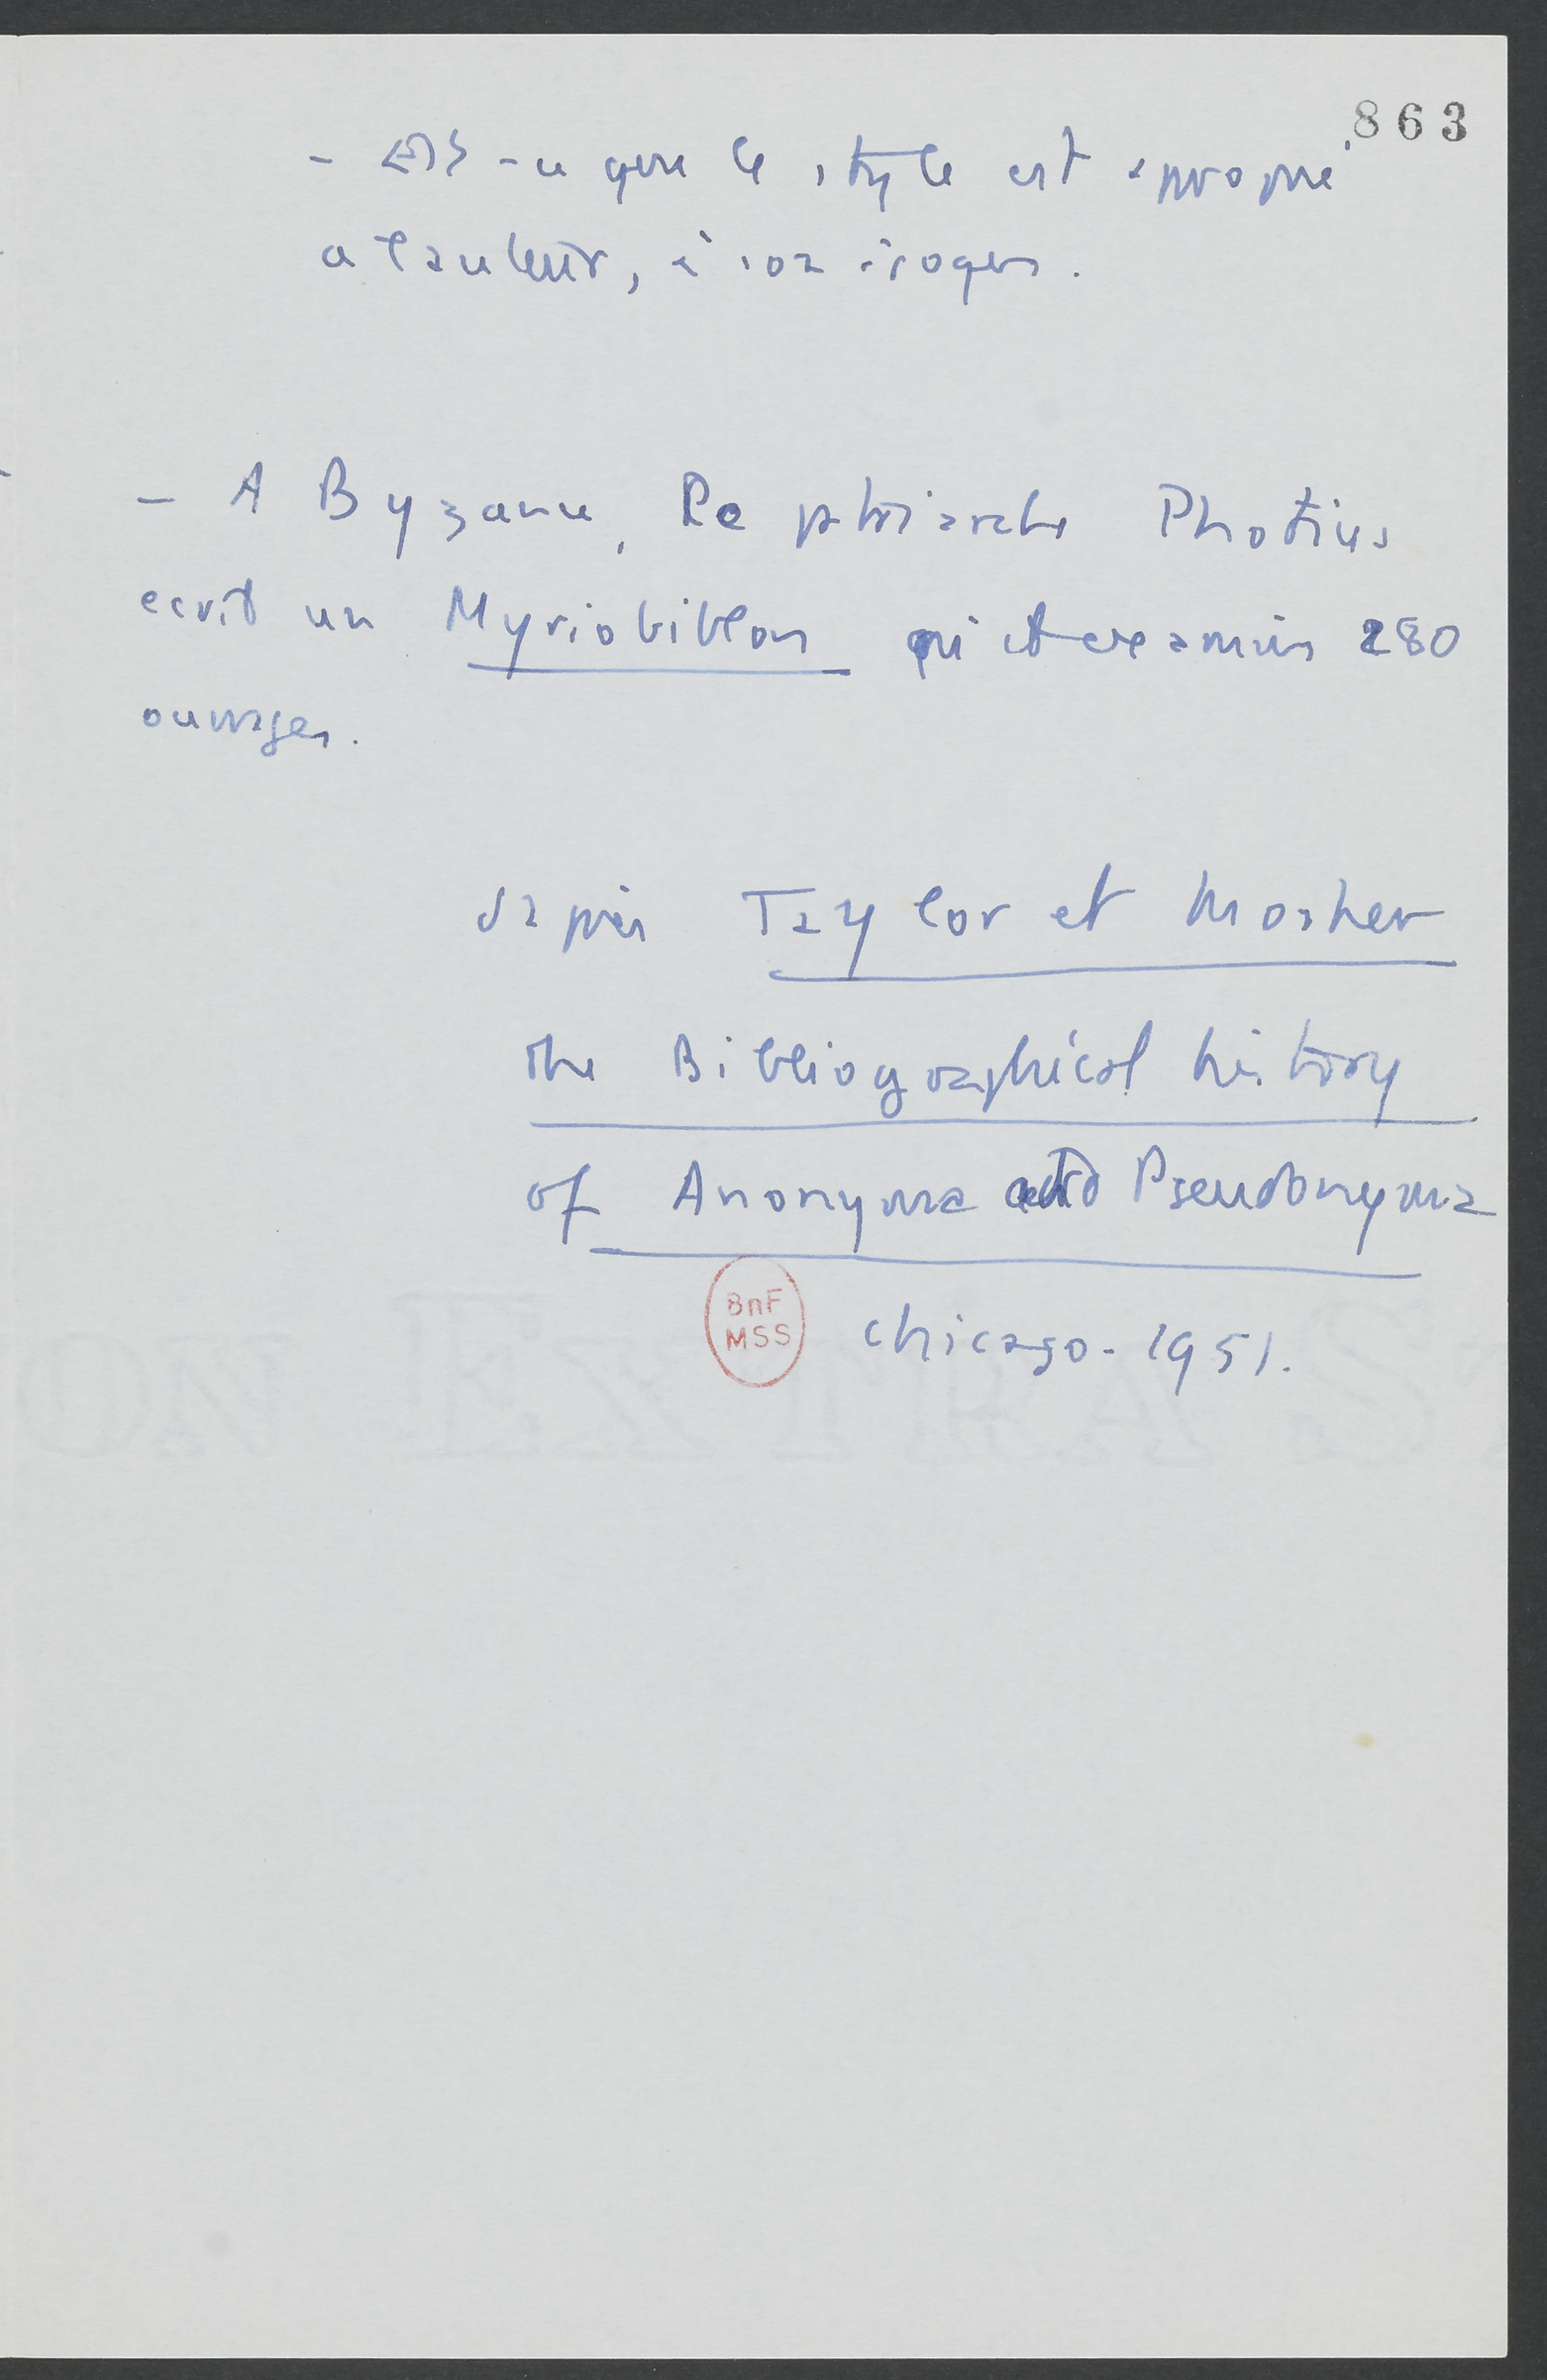 863
- Est-ce que le style est approprié
a l'auteur, à son époque.
- A Byzance, le patriarche Photius
ecrit un Myriobiblon qui et examine 280
ouvrages.
d'après Taylor et Mosher
The Bibliographical history
of Anonyma and Pseudonyma
BnF
MSS
Chicago - 1951.